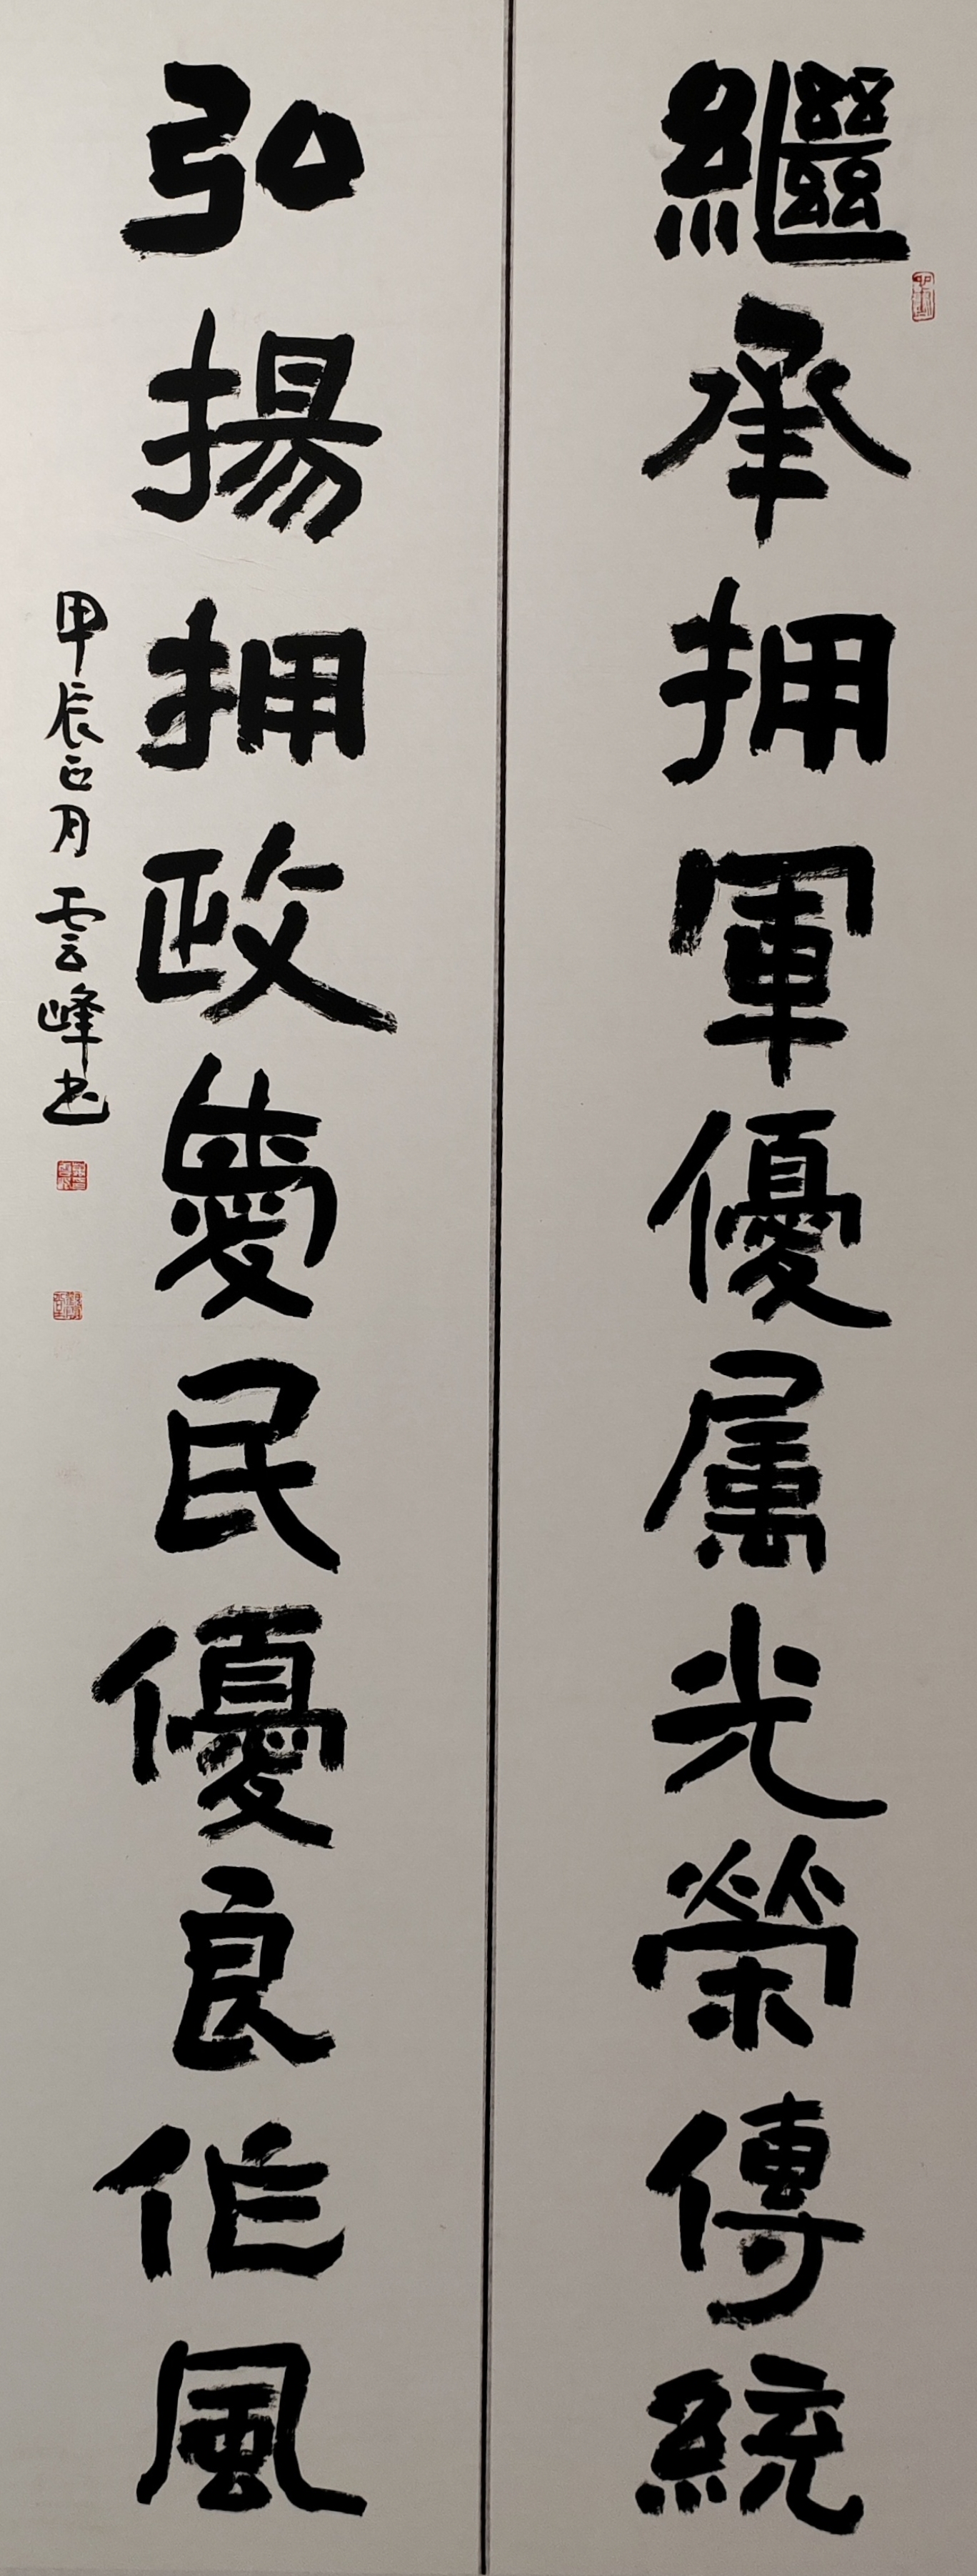 繼承拥軍優属光榮傳統
弘揚拥政愛民優良作風
甲辰正月雲峰书